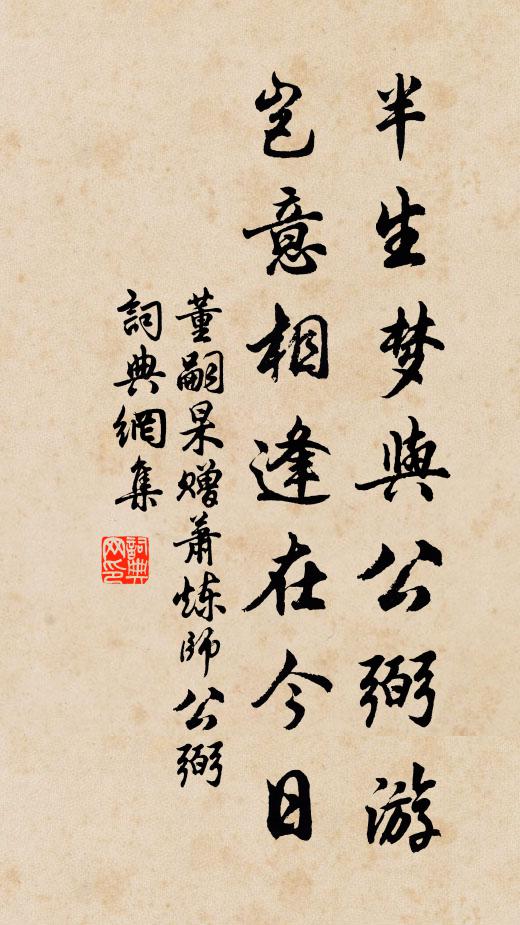 半生梦與公弼游
岂意相逢在今日
董嗣杲赠萧炼師公弼
詞典網集
詞典网印